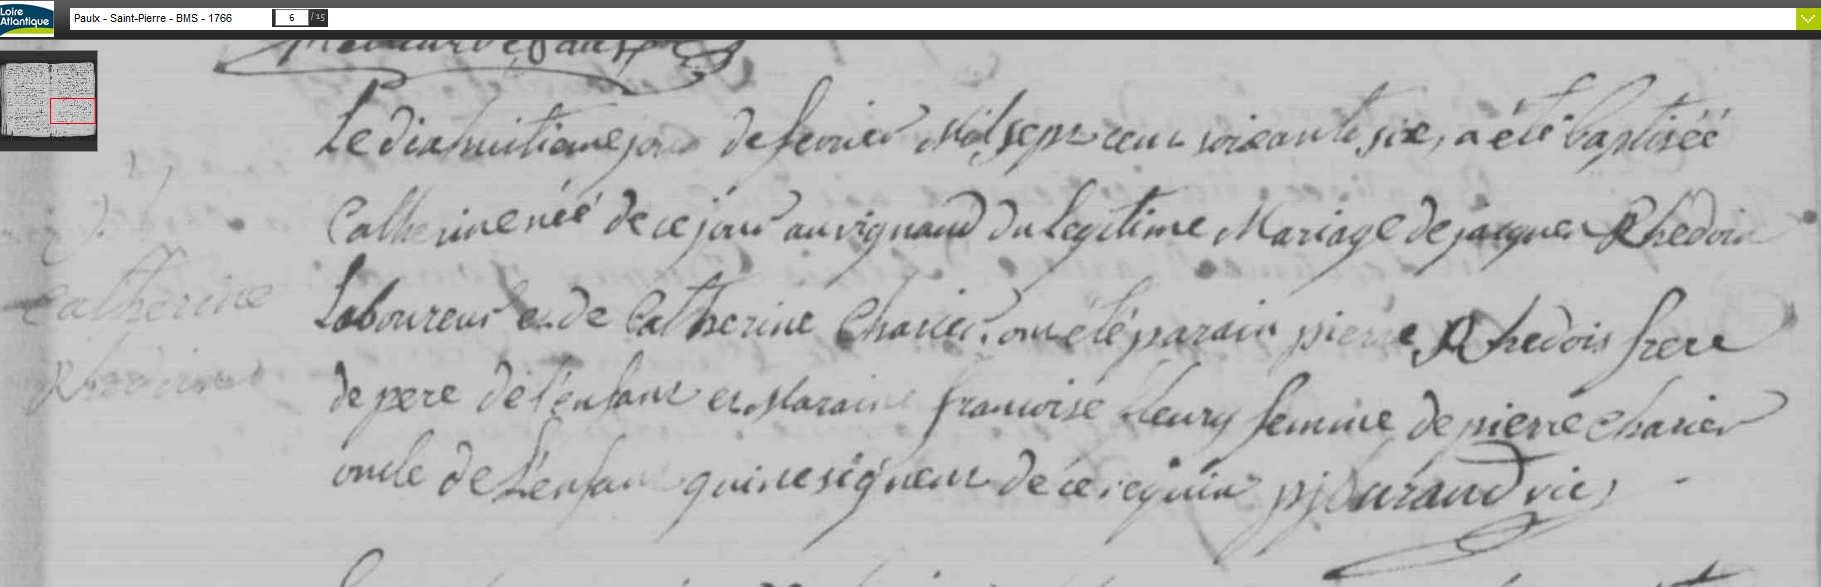 Loire
Atlantique
Paulx - Saint-Pierre - BMS - 1766
6 / 15
Le dixhuitieme jour de fevrier Mil sept cent soixante six, a été baptiséé
Catherine néé de ce jour au vignaud du Legitime Mariage de jacques Rhedois
Laboureur et de Catherine Charier. ont eté parain pierre Rhedois frere
de pere de l'enfant et Maraine francoise fleury femme de pierre charier
oncle de L'enfant qui ne signent de ce requis pj Duraud vic,
Catherine